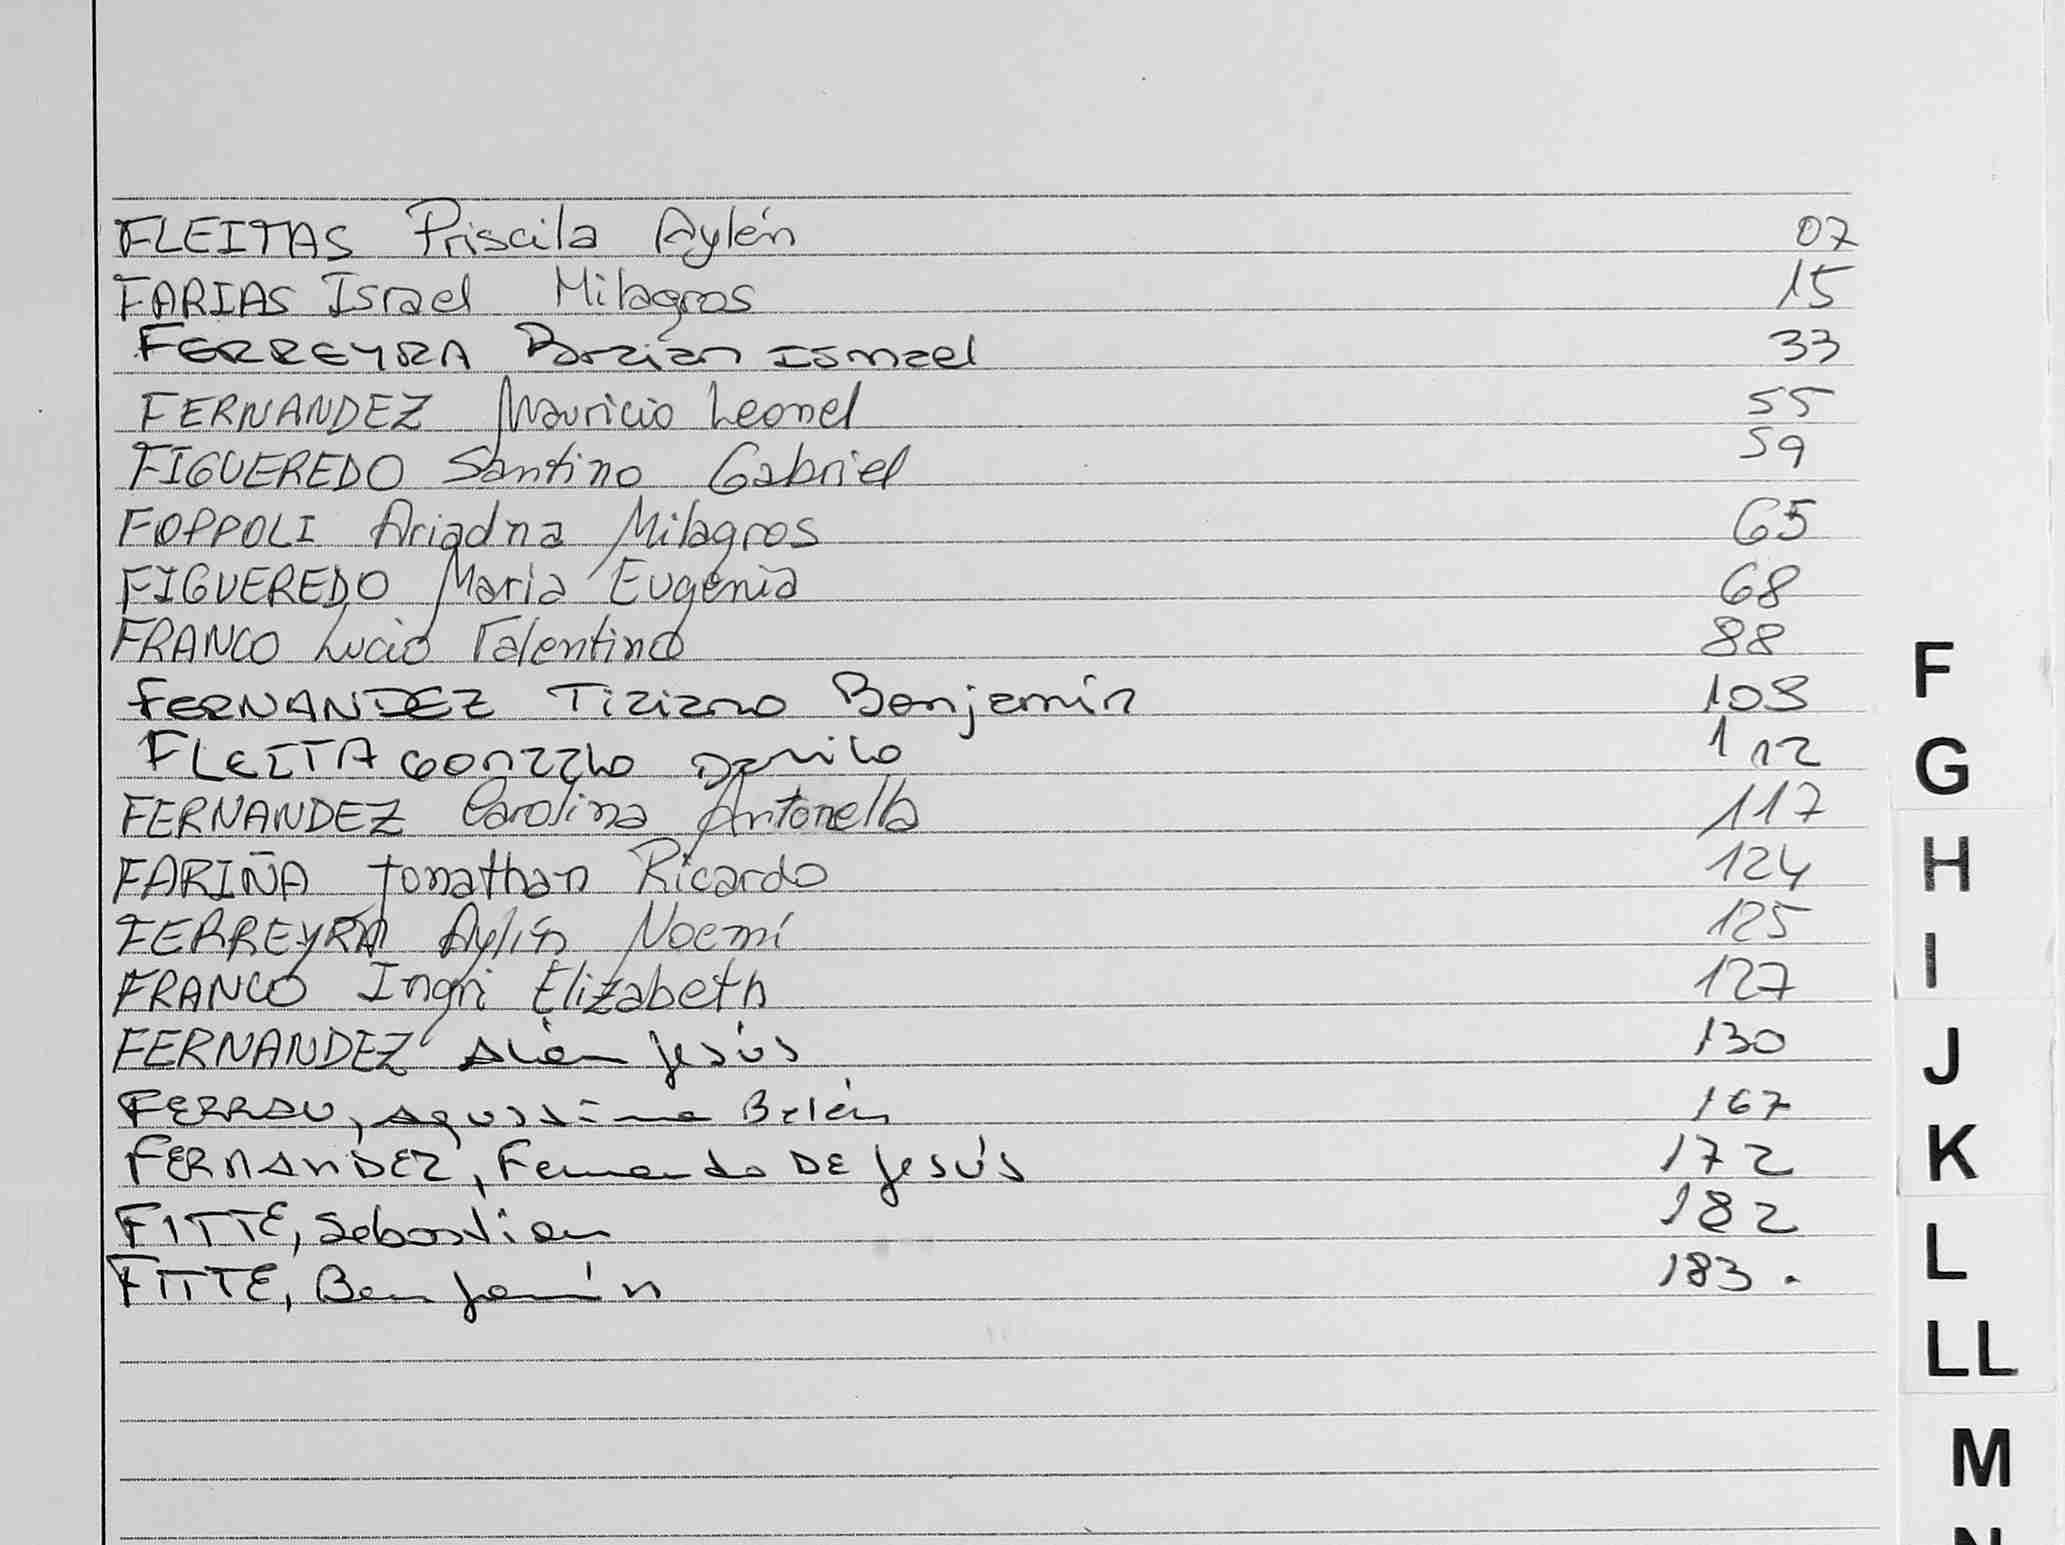 FLEITAS Priscila Aylén 07
FARIAS Israel Milagros 15
FERREYRA Braian Ismael 33
FERNANDEZ Mauricio Leonel 55
FIGUEREDO Santino Gabriel 59
FOPPOLI Ariadna Milagros 65
FIGUEREDO Maria Eugenia 68
FRANCO Lucio Valentino 88
F
FERNANDEZ Tiziano Benjamín 108
FLEITA Gonzalo Danilo 112
G
FERNANDEZ Carolina Antonella 117
FARIÑA Jonathan Ricardo 124
H
FERREYRA Aylín Noemí 125
FRANCO Ingri Elizabeth 127
I
FERNANDEZ Jesús 130
J
Belén 167
FERNANDEZ, Fernando DE Jesús 172
K
FITTE, Sebastian 182
L
FITTE, Benjamín 183.
LL
M
N